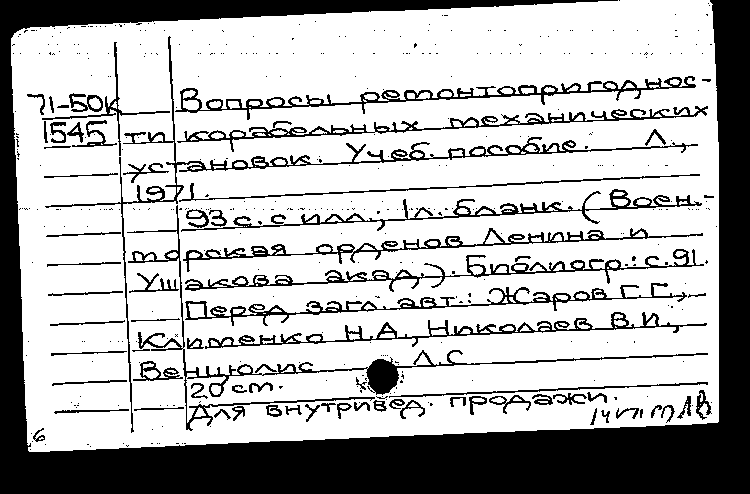 71-50к Вопросы ремонтопригоднос-
1545 ти корабельных механических
установок. Учеб. пособие. Л.,
1971.
93 с. с илл.; 1 л. бланк. (Воен.-
морская орденов Ленина и
Ушакова акад.). Библиогр.: с. 91.
Перед загл. авт.: Жаров Г.Г.,
Клименко Н.А., Николаев В.И.,
Венцюлис Л.С
20 cm.
Для внутривед. продажи.
6